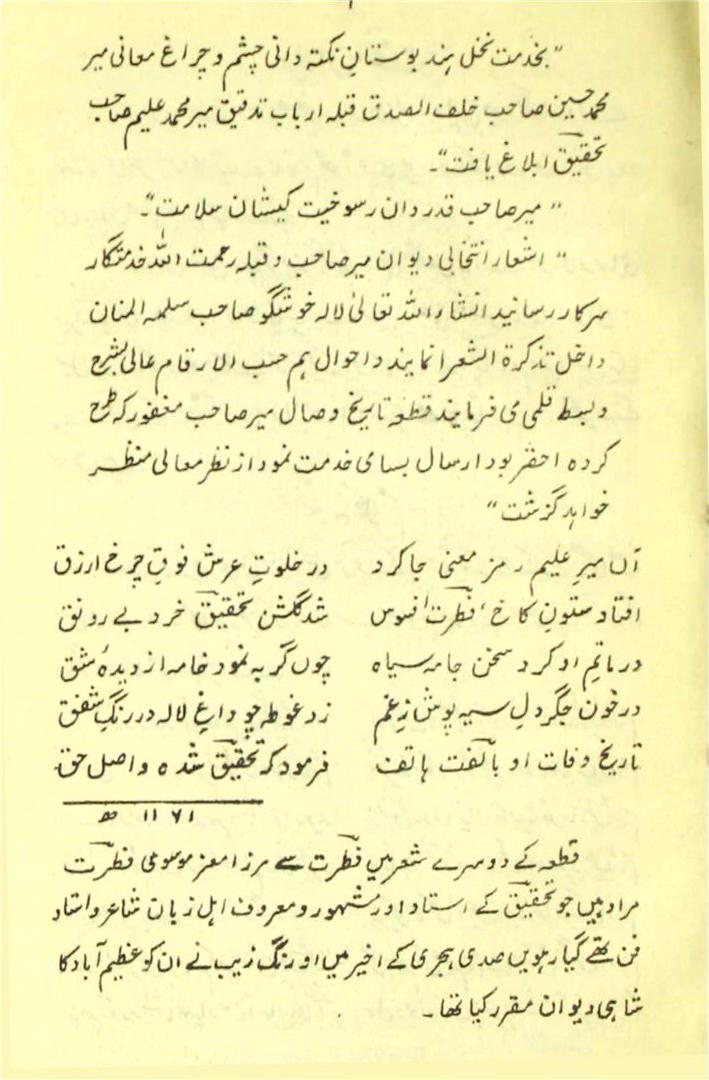 "بخدمت نخل بند بوستانِ نکتہ دانی چشم و چراغ معانی میر
محمد حسین صاحب خلف الصدق قبلہ ارباب تدقیق میر محمد علیم صاحب
تحقیق ابلاغ یافت"۔
"میر صاحب قدر دان رسوخیت کیشان سلامت"۔
"اشعار انتخابی دیوان میر صاحب و قبلہ رحمت اللہ خدمتگار
سرکار رسانید انشاء اللہ تعالیٰ لالہ خوشگو صاحب سلمہ المنان
داخل تذکرۃ الشعرا نمایند و احوال ہم حسب الارقام عالی بشرح
و بسط قلمی می فرمایند قطعہ تاریخ وصال میر صاحب مغفور کہ طرح
کردہ احقر بود ارسال بسامی خدمت نمود از نظر معالی منظر
خواہد گزشت"
آں میرِ علیم رمز معنی جا کرد در خلوتِ عرش فوقِ چرخ ازرق
افتاد ستونِ کاخ 'فطرت' افسوس شد گلشن تحقیق خرد بے رونق
در ماتمِ او کرد سخن جامہ سیاہ چوں گریہ نمود خامہ از دیدۂ شق
در خون جگر دلِ سیہ پوش زغم زد غوطہ چو داغِ لالہ در رنگِ شفق
تاریخ وفات او با لگفت ہاتف فرمود کہ تحقیق شدہ واصل حق
۱۱۶۱ ھ
قطعہ کے دوسرے شعر میں فطرت سے مرزا معز موسوی فطرت
مراد ہیں جو تحقیق کے استاد اور مشہور و معروف اہل زبان شاعر و استاد
فن تھے گیارہویں صدی ہجری کے اخیر میں اورنگ زیب نے ان کو عظیم آباد کا
شاہی دیوان مقرر کیا تھا۔